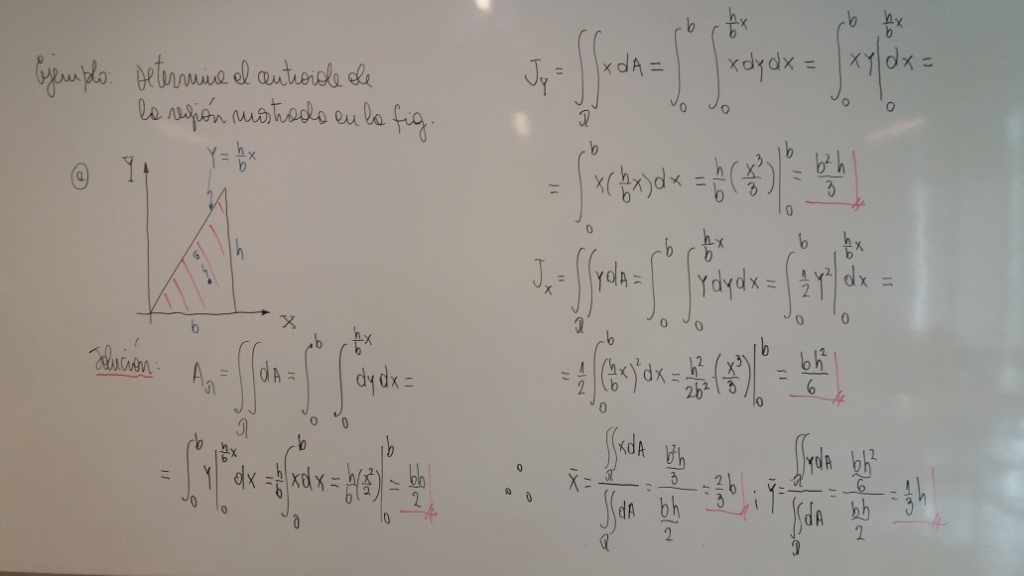 Ejemplo: Determina el centroide de
la región mostrada en la fig.
ⓐ Y y = h/b x
h
G
b X
Solución: A_R = ∬_R dA = ∫_0^b ∫_0^{h/b x} dy dx =
= ∫_0^b y |_0^{h/b x} dx = h/b ∫_0^b x dx = h/b (x²/2) |_0^b = bh/2
J_y = ∬_R x dA = ∫_0^b ∫_0^{h/b x} x dy dx = ∫_0^b xy |_0^{h/b x} dx =
= ∫_0^b x (h/b x) dx = h/b (x³/3) |_0^b = b²h/3
J_x = ∬_R y dA = ∫_0^b ∫_0^{h/b x} y dy dx = ∫_0^b 1/2 y² |_0^{h/b x} dx =
= 1/2 ∫_0^b (h/b x)² dx = h²/2b² · (x³/3) |_0^b = bh²/6
∴ x̄ = ∬_R x dA / ∬_R dA = (b²h/3) / (bh/2) = 2/3 b ; ȳ = ∬_R y dA / ∬_R dA = (bh²/6) / (bh/2) = 1/3 h